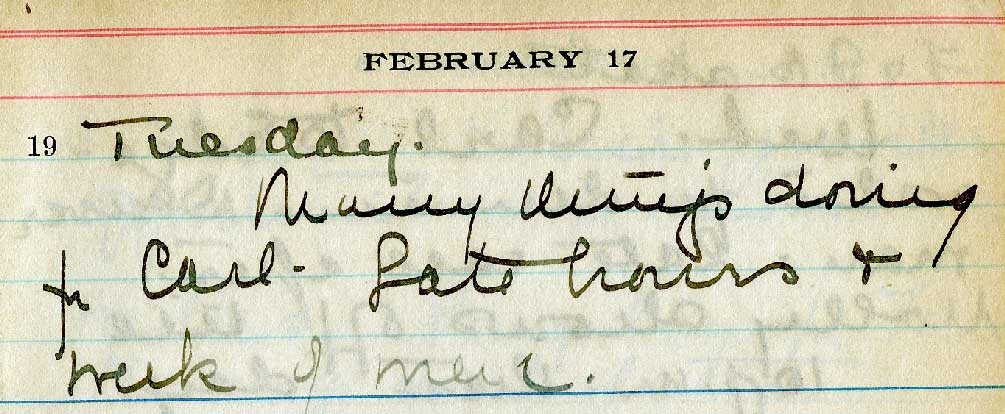 FEBRUARY 17
19 Tuesday.
Many things doing
for Carl - Late hours +
week of